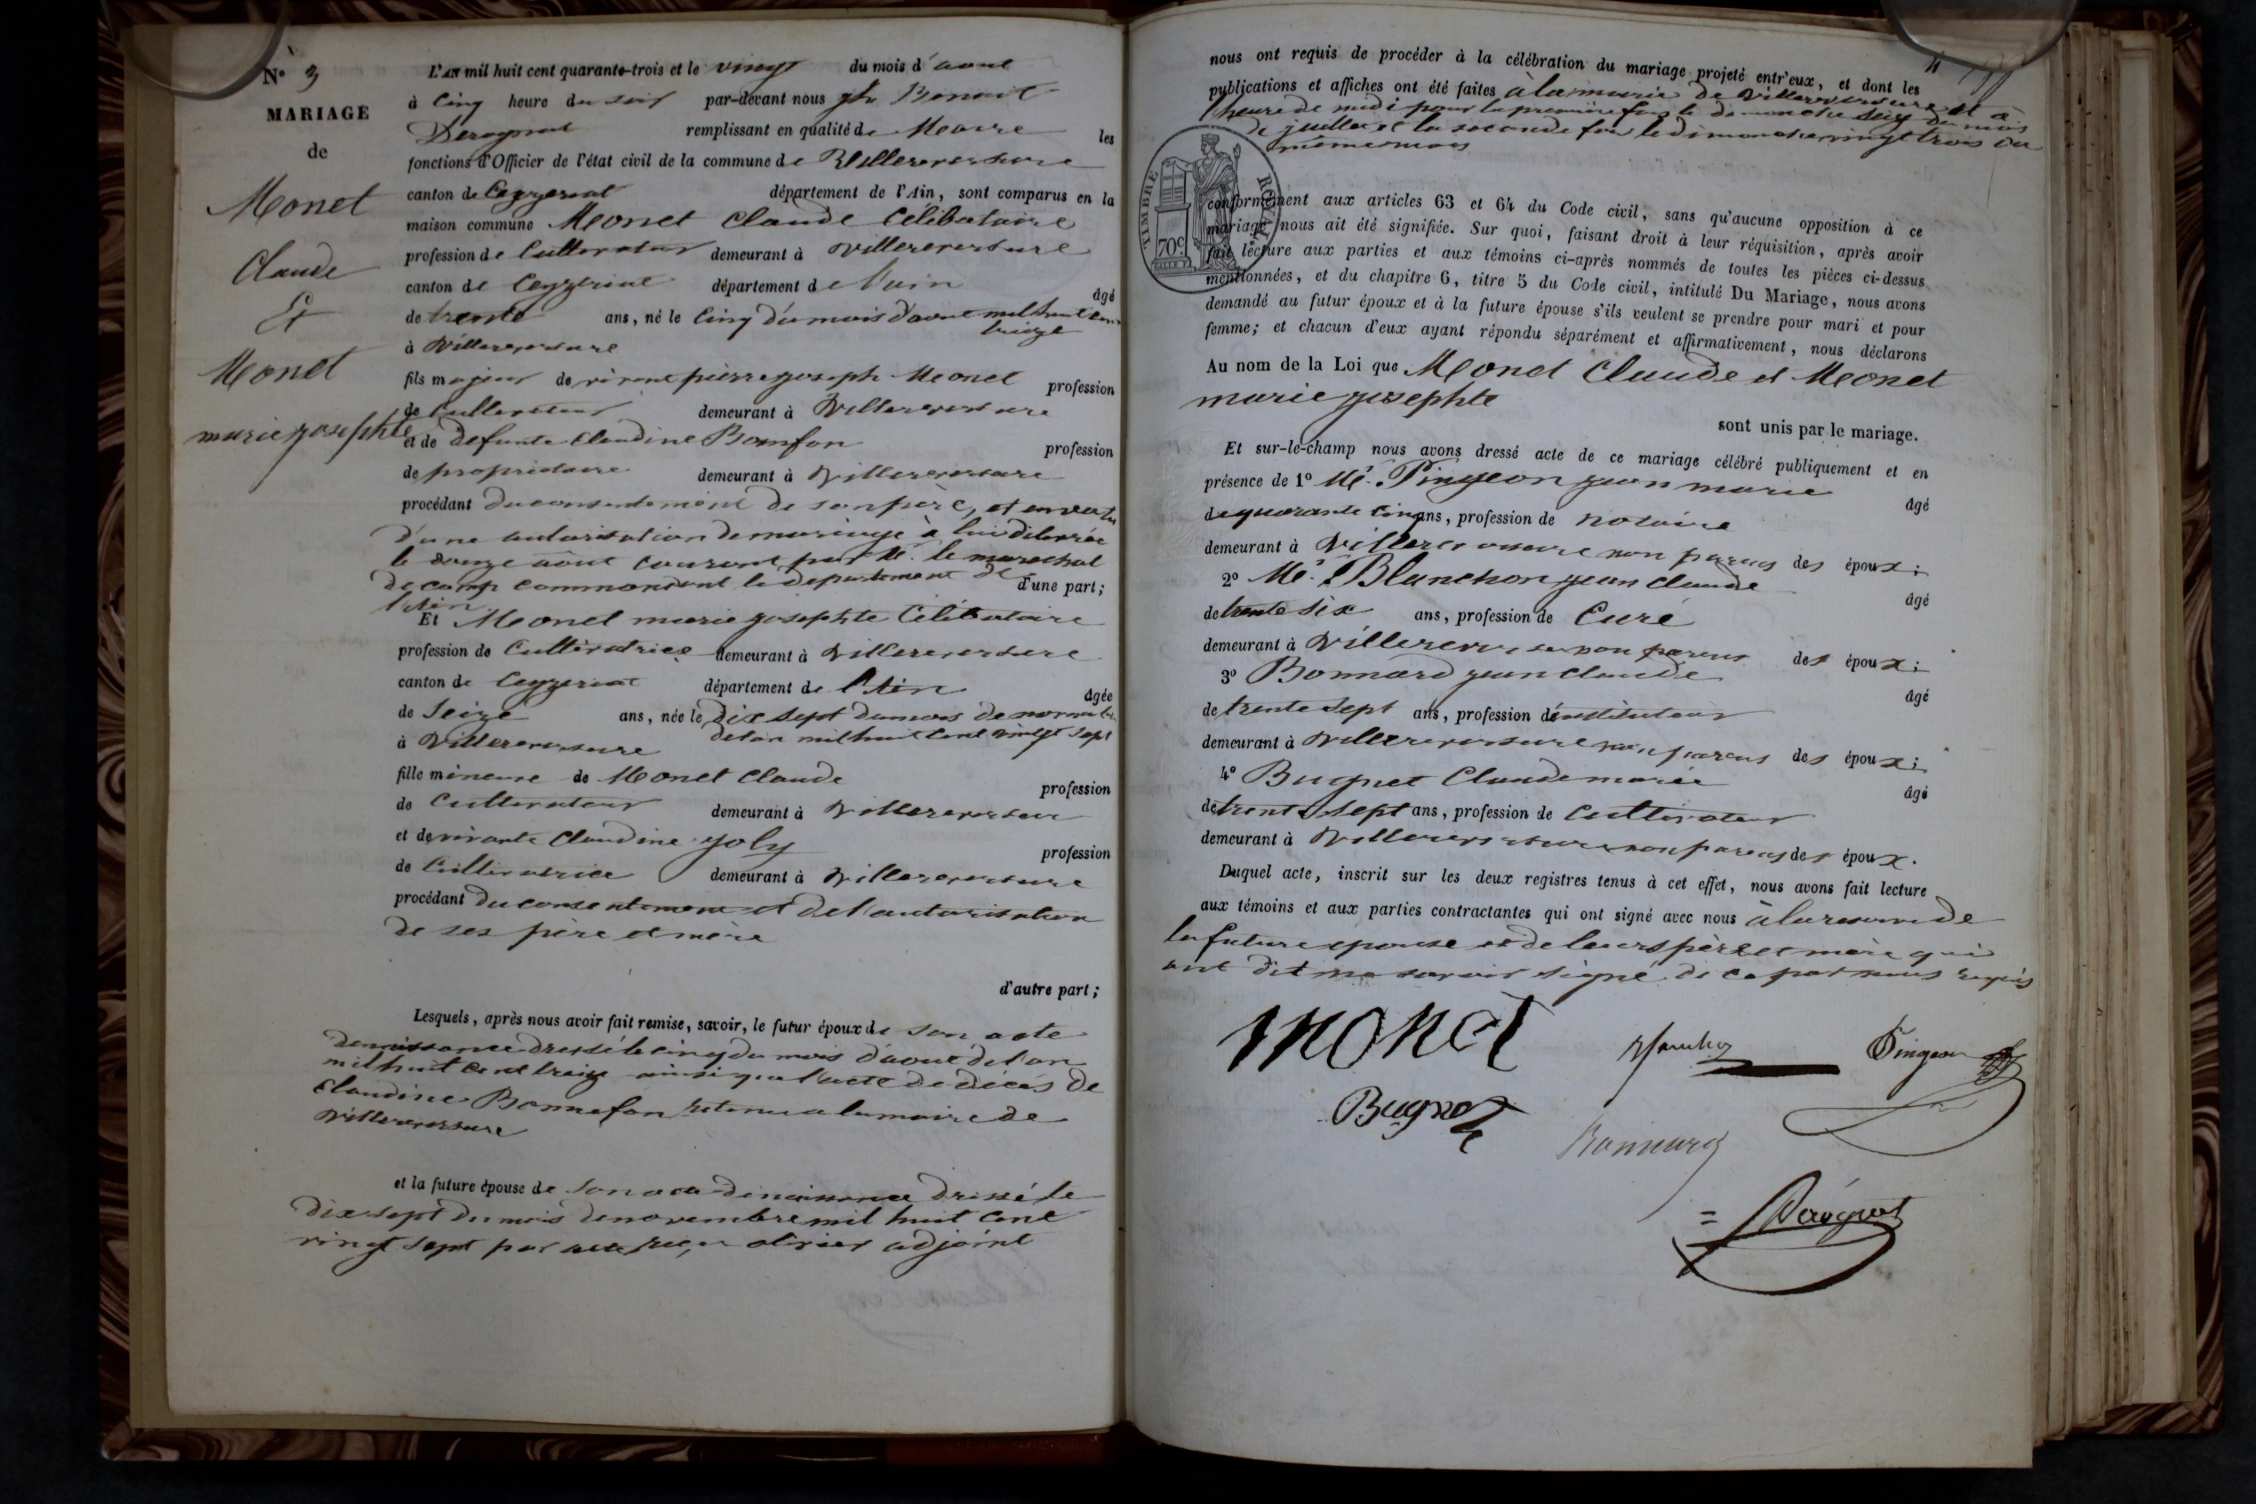 N° 3
MARIAGE
de
Monet
Claude
Et
Monet
marie josephte
L'AN mil huit cent quarante-trois et le vingt du mois d'aout
à cinq heure du soir par-devant nous Benoit
Derognat remplissant en qualité de Maire les
fonctions d'Officier de l'état civil de la commune de Villereversure
canton de Ceyzeriat département de l'Ain, sont comparus en la
maison commune Monet Claude Célibataire
profession de Cultivateur demeurant à Villereversure
canton de Ceyzeriat département de l'ain âgé
de trente ans, né le Cinq du mois d'aout mil huit cent
treize
à Villereversure
fils majeur de vivant pierre joseph Monet profession
de Cultivateur demeurant à Villereversure
et de defunte Claudine Bonnfon profession
de propriétaire demeurant à Villereversure
procédant du consentement de son père, et en vertu
d'une autorisation de mariage à lui délivrée
le douze aout courant par Mr. le marechal
de camp commandant le departement de d'une part;
l'Ain
Et Monet marie josephte Célibataire
profession de Cultivatrice demeurant à Villereversure
canton de Ceyzeriat département de l'Ain âgée
de Seize ans, née le dix sept du mois de novembre
de l'an mil huit cent vingt sept
à Villereversure
fille mineure de Monet Claude profession
de Cultivateur demeurant à Villereversure
et de vivante Claudine Joly profession
de Cultivatrice demeurant à Villereversure
procédant du consentement et de l'autorisation
de ses père et mère
d'autre part;
Lesquels, après nous avoir fait remise, savoir, le futur époux de son acte
de naissance dressé le cinq du mois d'aout de l'an
mil huit cent treize ainsi que l'acte de décès de
Claudine Bonnefon retenu a la mairie de
Villereversure
et la future épouse de son acte de naissance dressé le
dix sept du mois de novembre mil huit cent
vingt sept par acte reçu olivier adjoint
nous ont requis de procéder à la célébration du mariage projeté entr'eux, et dont les
publications et affiches ont été faites à la mairie de Villereversure et à
l'heure de midi pour la première fois le dimanche seize du mois
de juillet et la seconde fois le dimanche vingt trois du
même mois
TIMBRE ROYAL
70c
conformément aux articles 63 et 64 du Code civil, sans qu'aucune opposition à ce
mariage nous ait été signifiée. Sur quoi, faisant droit à leur réquisition, après avoir
fait lecture aux parties et aux témoins ci-après nommés de toutes les pièces ci-dessus
mentionnées, et du chapitre 6, titre 5 du Code civil, intitulé Du Mariage, nous avons
demandé au futur époux et à la future épouse s'ils veulent se prendre pour mari et pour
femme; et chacun d'eux ayant répondu séparément et affirmativement, nous déclarons
Au nom de la Loi que Monet Claude et Monet
marie josephte
sont unis par le mariage.
Et sur-le-champ nous avons dressé acte de ce mariage célébré publiquement et en
présence de 1° Mr. Pingeon jean marie âgé
de quarante cinq ans, profession de notaire
demeurant à Villereversure non parens des époux;
2° Mr. Blanchon jean Claude âgé
de trente six ans, profession de Curé
demeurant à Villereversure non parens des époux;
3° Bonnard jean Claude âgé
de trente sept ans, profession d'instituteur
demeurant à Villereversure non parens des époux;
4° Bugnet Claude marie âgé
de trente sept ans, profession de Cultivateur
demeurant à Villereversure non parens des époux.
Duquel acte, inscrit sur les deux registres tenus à cet effet, nous avons fait lecture
aux témoins et aux parties contractantes qui ont signé avec nous à la reserve de
la future epouse et de leurs père et mère qui
ont dit ne savoir signé de ce par nous requis
MONET
Blanchon
Pingeon
Bugnet
Bonnard
Derognat